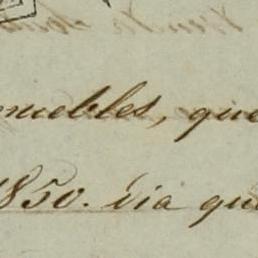 muebles, que
1850. dia que